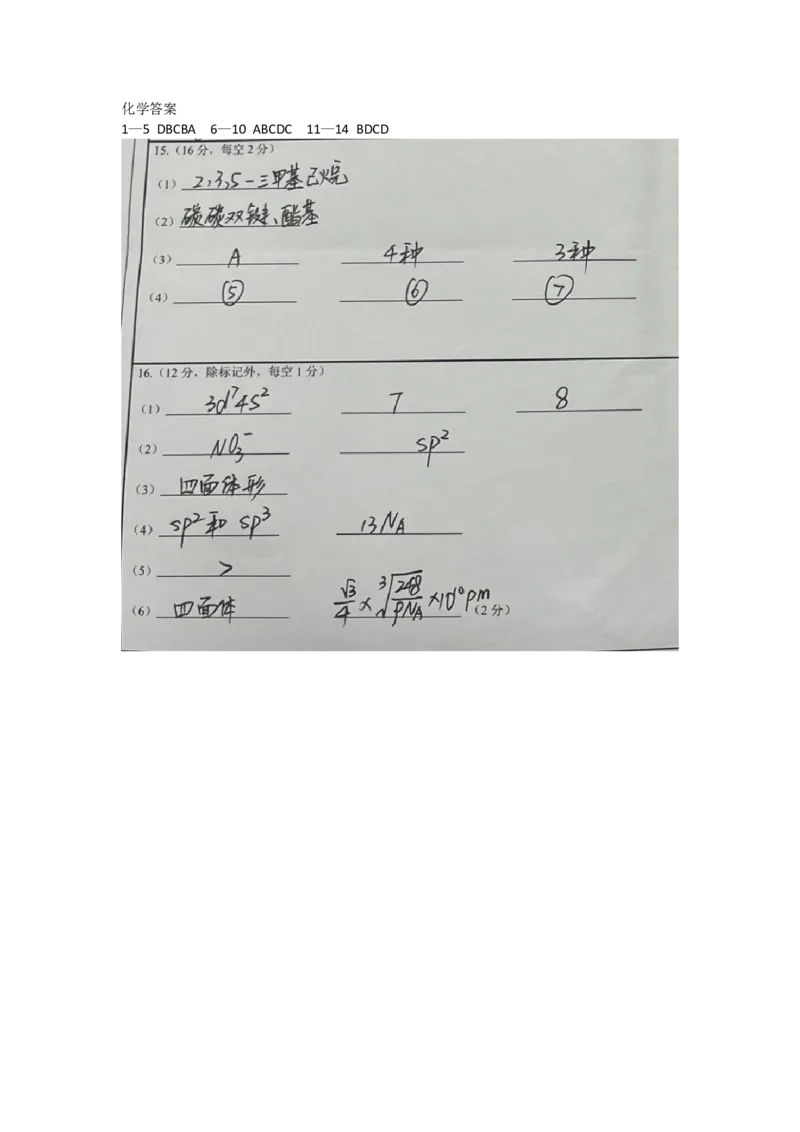 化学答案
1—5 DBCBA 6—10 ABCDC 11—14 BDCD
15.（16分，每空2分）
（1） 2,3,5-三甲基己烷
（2） 碳碳双键、酯基
（3） A 4种 3种
（4） ⑤ ⑥ ⑦
16.（12分，除标记外，每空1分）
（1） 3d⁷4s² 7 8
（2） NO₃⁻ sp²
（3） 四面体形
（4） sp²和 sp³ 13NA
（5） >
（6） 四面体 √3/4 × ∛(248/ρNA) ×10¹⁰pm （2分）